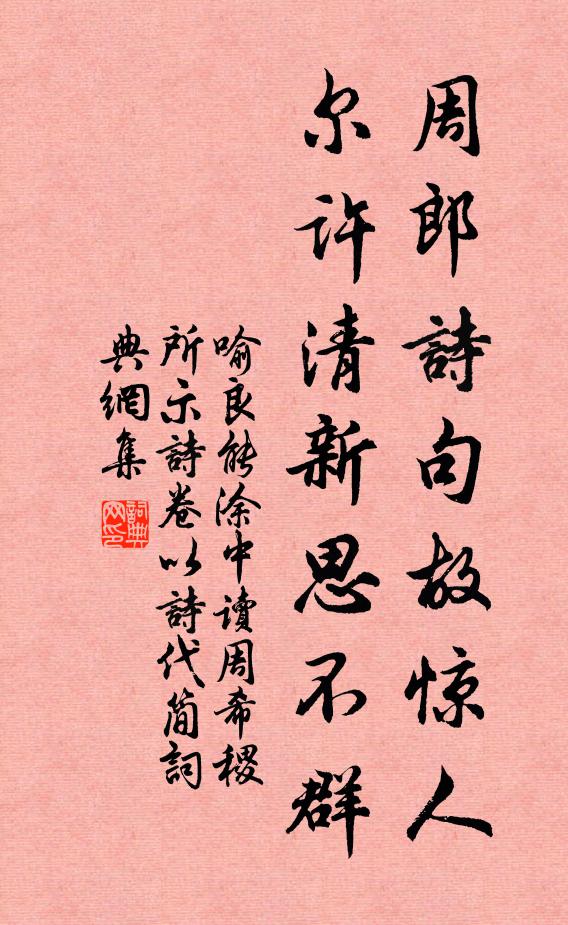 周郎詩句故惊人
尔许清新思不群
喻良能涂中讀周希稷
所示詩卷以詩代简詞
典網集
詞典網印